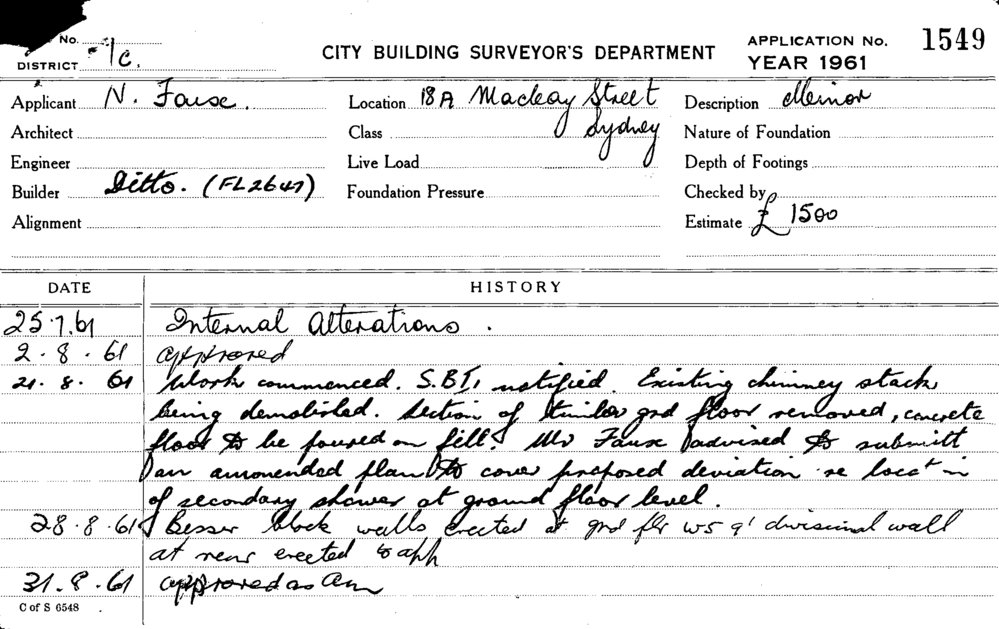 No.
DISTRICT /C.
CITY BUILDING SURVEYOR'S DEPARTMENT
APPLICATION No. 1549
YEAR 1961
Applicant N. Fause.
Location 18A Macleay Street Sydney
Description Meinor
Architect
Class
Nature of Foundation
Engineer
Live Load
Depth of Footings
Builder Ditto. (FL2647)
Foundation Pressure
Checked by
Alignment
Estimate £ 1500
DATE HISTORY
25.7.61 Internal Alterations.
2.8.61 approved
21.8.61 Work commenced. S.B.I. notified. Existing chimney stack
being demolished. Section of timber grd floor removed, concrete
floor to be poured on fill. Mr Fause advised to submitt
an amonended plan to cover proposed deviation re locatn
of secondary shower at ground floor level.
28.8.61 Besser block walls erected at grd flr ws 9' divisional wall
at rear erected
31.8.61 approved as Am
C of S 6548